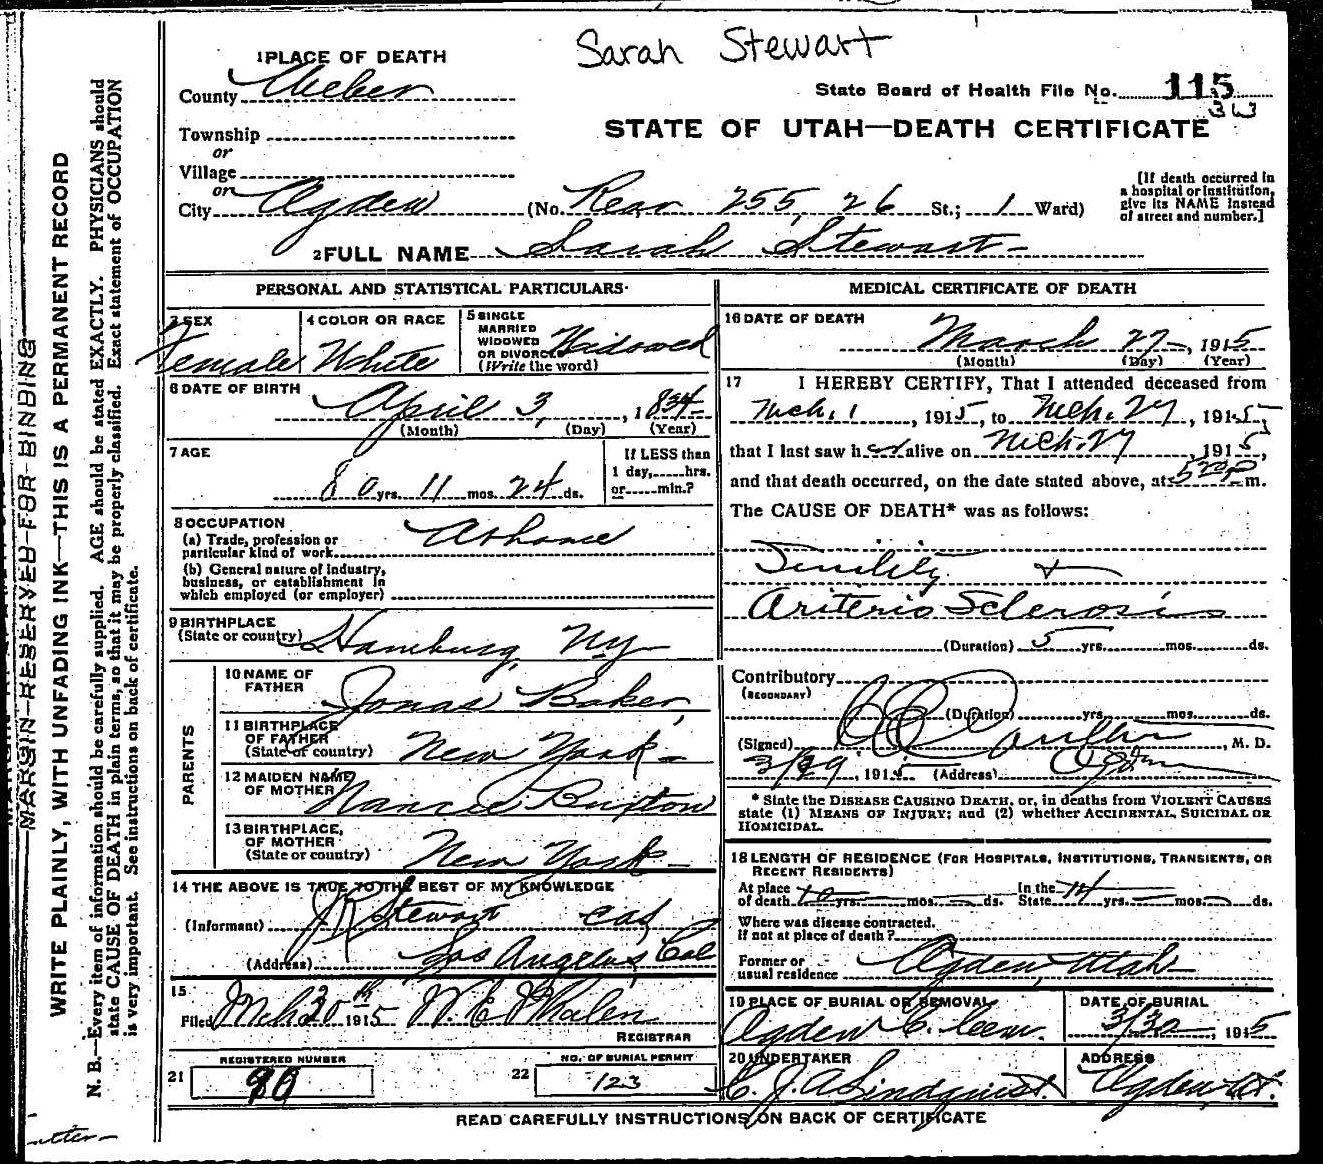 Sarah Stewart
1 PLACE OF DEATH
County Weber
State Board of Health File No. 115
363
STATE OF UTAH—DEATH CERTIFICATE
Township
or
Village
or
City Ogden (No. Rear 255, 26 St.; 1 Ward)
[If death occurred in
a hospital or institution,
give its NAME instead
of street and number.]
2 FULL NAME Sarah Stewart
PERSONAL AND STATISTICAL PARTICULARS
3 SEX
Female
4 COLOR OR RACE
White
5 SINGLE
MARRIED
WIDOWED
OR DIVORCED
(Write the word)
Widowed
6 DATE OF BIRTH
April 3, 1834
(Month) (Day) (Year)
7 AGE
80 yrs. 11 mos. 24 ds.
If LESS than
1 day, hrs.
or min.?
8 OCCUPATION
(a) Trade, profession or
particular kind of work At home
(b) General nature of industry,
business, or establishment in
which employed (or employer)
9 BIRTHPLACE
(State or country) Hamburg, NY
PARENTS
10 NAME OF
FATHER Jonas Baker
11 BIRTHPLACE
OF FATHER
(State or country) New York
12 MAIDEN NAME
OF MOTHER Nancie Buxton
13 BIRTHPLACE,
OF MOTHER
(State or country) New York
14 THE ABOVE IS TRUE TO THE BEST OF MY KNOWLEDGE
(Informant) Stewart
(Address) Los Angelos, Cal
15
Filed Mch 30th 1915 W. E. Whalen
REGISTRAR
21 REGISTERED NUMBER
90
22 NO. OF BURIAL PERMIT
123
MEDICAL CERTIFICATE OF DEATH
16 DATE OF DEATH
March 27, 1915
(Month) (Day) (Year)
17 I HEREBY CERTIFY, That I attended deceased from
Mch. 1, 1915, to Mch. 27, 1915,
that I last saw her alive on Mch. 27, 1915,
and that death occurred, on the date stated above, at 5 P m.
The CAUSE OF DEATH* was as follows:
Sinility +
Ariterio Sclerosis
(Duration) 5 yrs. mos. ds.
Contributory
(SECONDARY)
(Duration) yrs. mos. ds.
(Signed) , M. D.
3/29, 1915 (Address) Ogden
* State the DISEASE CAUSING DEATH, or, in deaths from VIOLENT CAUSES
state (1) MEANS OF INJURY; and (2) whether ACCIDENTAL, SUICIDAL OR
HOMICIDAL.
18 LENGTH OF RESIDENCE (FOR HOSPITALS, INSTITUTIONS, TRANSIENTS, OR
RECENT RESIDENTS)
At place
of death 10 yrs. mos. ds. In the
State 14 yrs. mos. ds.
Where was disease contracted.
If not at place of death?
Former or
usual residence Ogden, Utah
19 PLACE OF BURIAL OR REMOVAL
Ogden C. Cem.
DATE OF BURIAL
3/30, 1915
20 UNDERTAKER
C. J. A. Lindquist.
ADDRESS
Ogden Ut.
READ CAREFULLY INSTRUCTIONS ON BACK OF CERTIFICATE
MARGIN RESERVED FOR BINDING
WRITE PLAINLY, WITH UNFADING INK—THIS IS A PERMANENT RECORD
N. B.—Every item of information should be carefully supplied. AGE should be stated EXACTLY. PHYSICIANS should
state CAUSE OF DEATH in plain terms, so that it may be properly classified. Exact statement of OCCUPATION
is very important. See instructions on back of certificate.